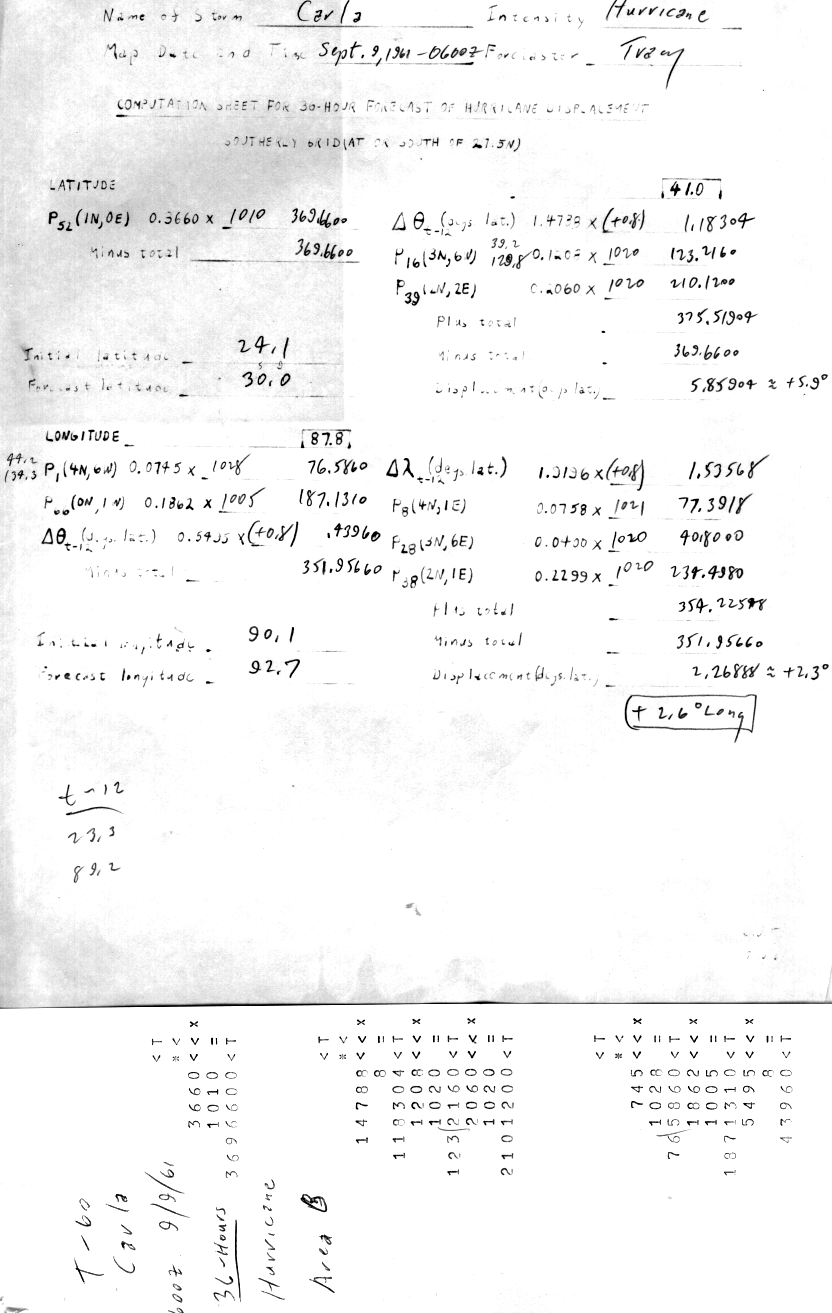 Name of Storm Carla Intensity Hurricane
Map Date and Time Sept. 9, 1961 - 0600Z Forecaster Tracy
COMPUTATION SHEET FOR 36-HOUR FORECAST OF HURRICANE DISPLACEMENT
SOUTHERLY GRID (AT OR SOUTH OF 27.5N)
LATITUDE
41.0
P52(1N,0E) 0.3660 x 1010 369.6600
Minus total 369.6600
Initial latitude 24.1
5 9
Forecast latitude 30.0
Δθt-12 (degs lat.) 1.4788 x (+0.8) 1.18304
39.2
P16(3N,6W) 129.8 0.1208 x 1020 123.2160
P39(2N,2E) 0.2060 x 1020 210.1200
Plus total 375.51904
Minus total 369.6600
Displacement (degs lat.) 5.85904 ≈ +5.9°
LONGITUDE
87.8
44.2
134.3
P1(4N,6W) 0.0745 x 1028 76.5860
P66(0N,1W) 0.1862 x 1005 187.1310
Δθt-12 (degs. lat.) 0.5495 x (+0.8) .43960
Minus total 351.95660
Initial longitude 90.1
Forecast longitude 92.7
Δλt-12 (degs lat.) 1.9196 x (+0.8) 1.53568
P8(4N,1E) 0.0758 x 1021 77.3918
P28(3N,6E) 0.0400 x 1020 40.8000
P38(2N,1E) 0.2299 x 1020 234.4980
Plus total 354.22548
Minus total 351.95660
Displacement (degs. lat.) 2.26888 ≈ +2.3°
+ 2.6° Long
t-12
23.3
89.2
T-60
Carla
9/9/61
36-Hours
Hurricane
Area B
<T
* <
3660 < < x
1010 =
3696600 < T
<T
* <
14788 < < x
8 =
118304 < T
1208 < < x
1020 =
1232160 < T
2060 < < x
1020 =
2101200 < T
<T
* <
745 < < x
1028 =
765860 < T
1862 < < x
1005 =
1871310 < T
5495 < < x
8 =
43960 < T